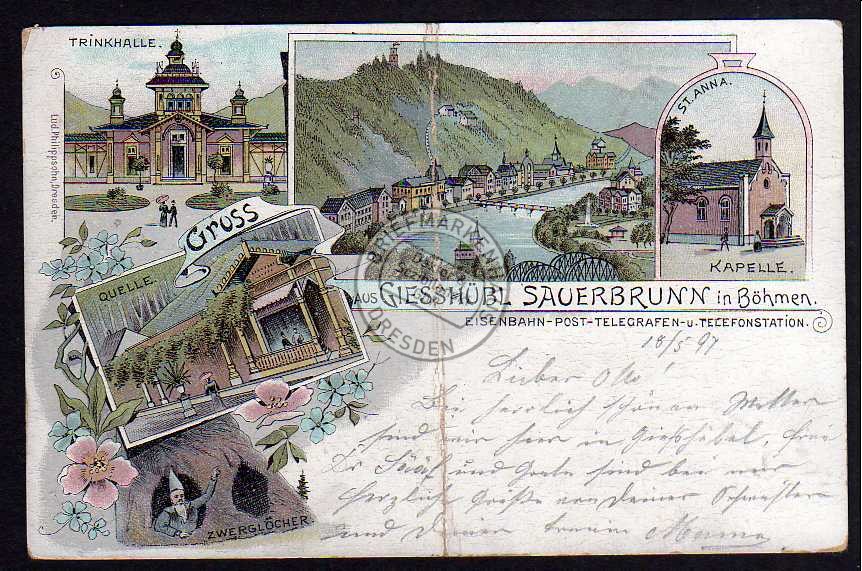 TRINKHALLE.
ST. ANNA.
KAPELLE.
Lud. Philippsohn, Dresden.
Gruss
QUELLE.
AUS GIESSHÜBL SAUERBRUNN in Böhmen.
EISENBAHN-POST-TELEGRAFEN-U. TELEFONSTATION.
BRIEFMARKEN
DRESDEN
ZWERGLÖCHER.
18/5 97
Lieber Otto!
Bei herrlich schönem Wetter
sind wir hier in Gießhübel, Frau
Dr und Grete sind bei uns
Herzliche Grüße von Deiner Schwester
und Deiner treuen Mama